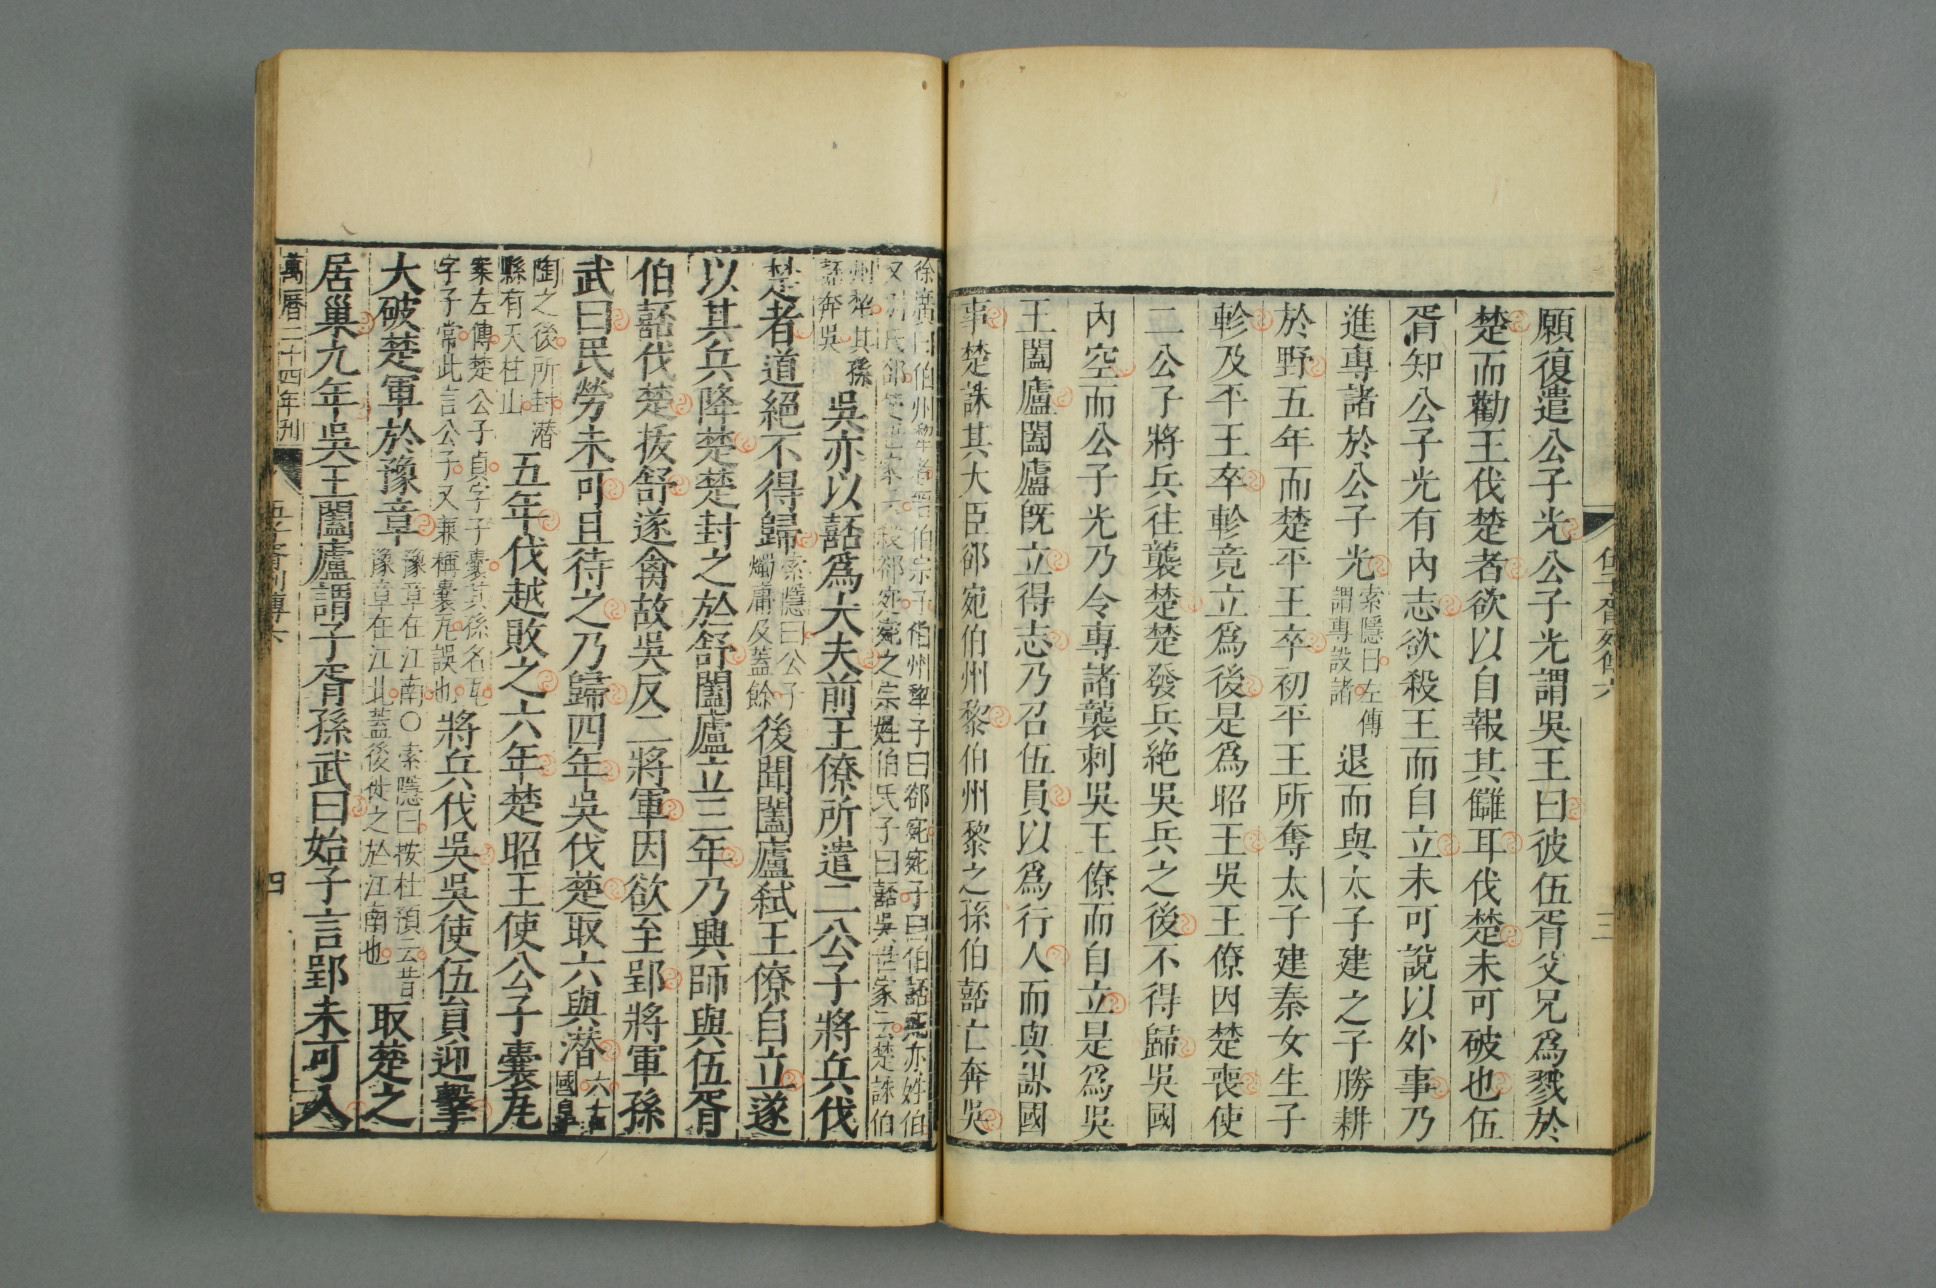 伍子胥列傳六
三
願復遣公子光公子光謂吳王曰彼伍胥父兄爲戮於
楚而勸王伐楚者欲以自報其讎耳伐楚未可破也伍
胥知公子光有內志欲殺王而自立未可說以外事乃
進專諸於公子光索隱曰左傳謂專設諸退而與太子建之子勝耕
於野五年而楚平王卒初平王所奪太子建秦女生子
軫及平王卒軫竟立爲後是爲昭王吳王僚因楚喪使
二公子將兵往襲楚楚發兵絶吳兵之後不得歸吳國
內空而公子光乃令專諸襲刺吳王僚而自立是爲吳
王闔廬闔廬旣立得志乃召伍員以爲行人而與謀國
事楚誅其大臣郤宛伯州黎伯州黎之孫伯嚭亡奔吳
徐廣曰伯州犂者晉伯宗子伯州犂子曰郤宛宛子曰伯嚭嚭亦姓伯
又別氏郤楚世家云殺郤宛宛之宗姓伯氏子曰嚭吳世家云楚誅伯
州犂其孫嚭奔吳吳亦以嚭爲大夫前王僚所遣二公子將兵伐
楚者道絕不得歸索隱曰公子燭庸及蓋餘後聞闔廬弒王僚自立遂
以其兵降楚楚封之於舒闔廬立三年乃興師與伍胥
伯嚭伐楚拔舒遂禽故吳反二將軍因欲至郢將軍孫
武曰民勞未可且待之乃歸四年吳伐楚取六與潛六古國臯
陶之後所封潛縣有天柱山五年伐越敗之六年楚昭王使公子囊瓦
案左傳楚公子貞字子囊其孫名瓦字子常此言公子又兼稱囊瓦誤也將兵伐吳吳使伍員迎擊
大破楚軍於豫章豫章在江南〇索隱曰按杜預云昔豫章在江北蓋後徙之於江南也取楚之
居巢九年吳王闔廬謂子胥孫武曰始子言郢未可入
萬曆二十四年刊
伍子胥列傳六
四